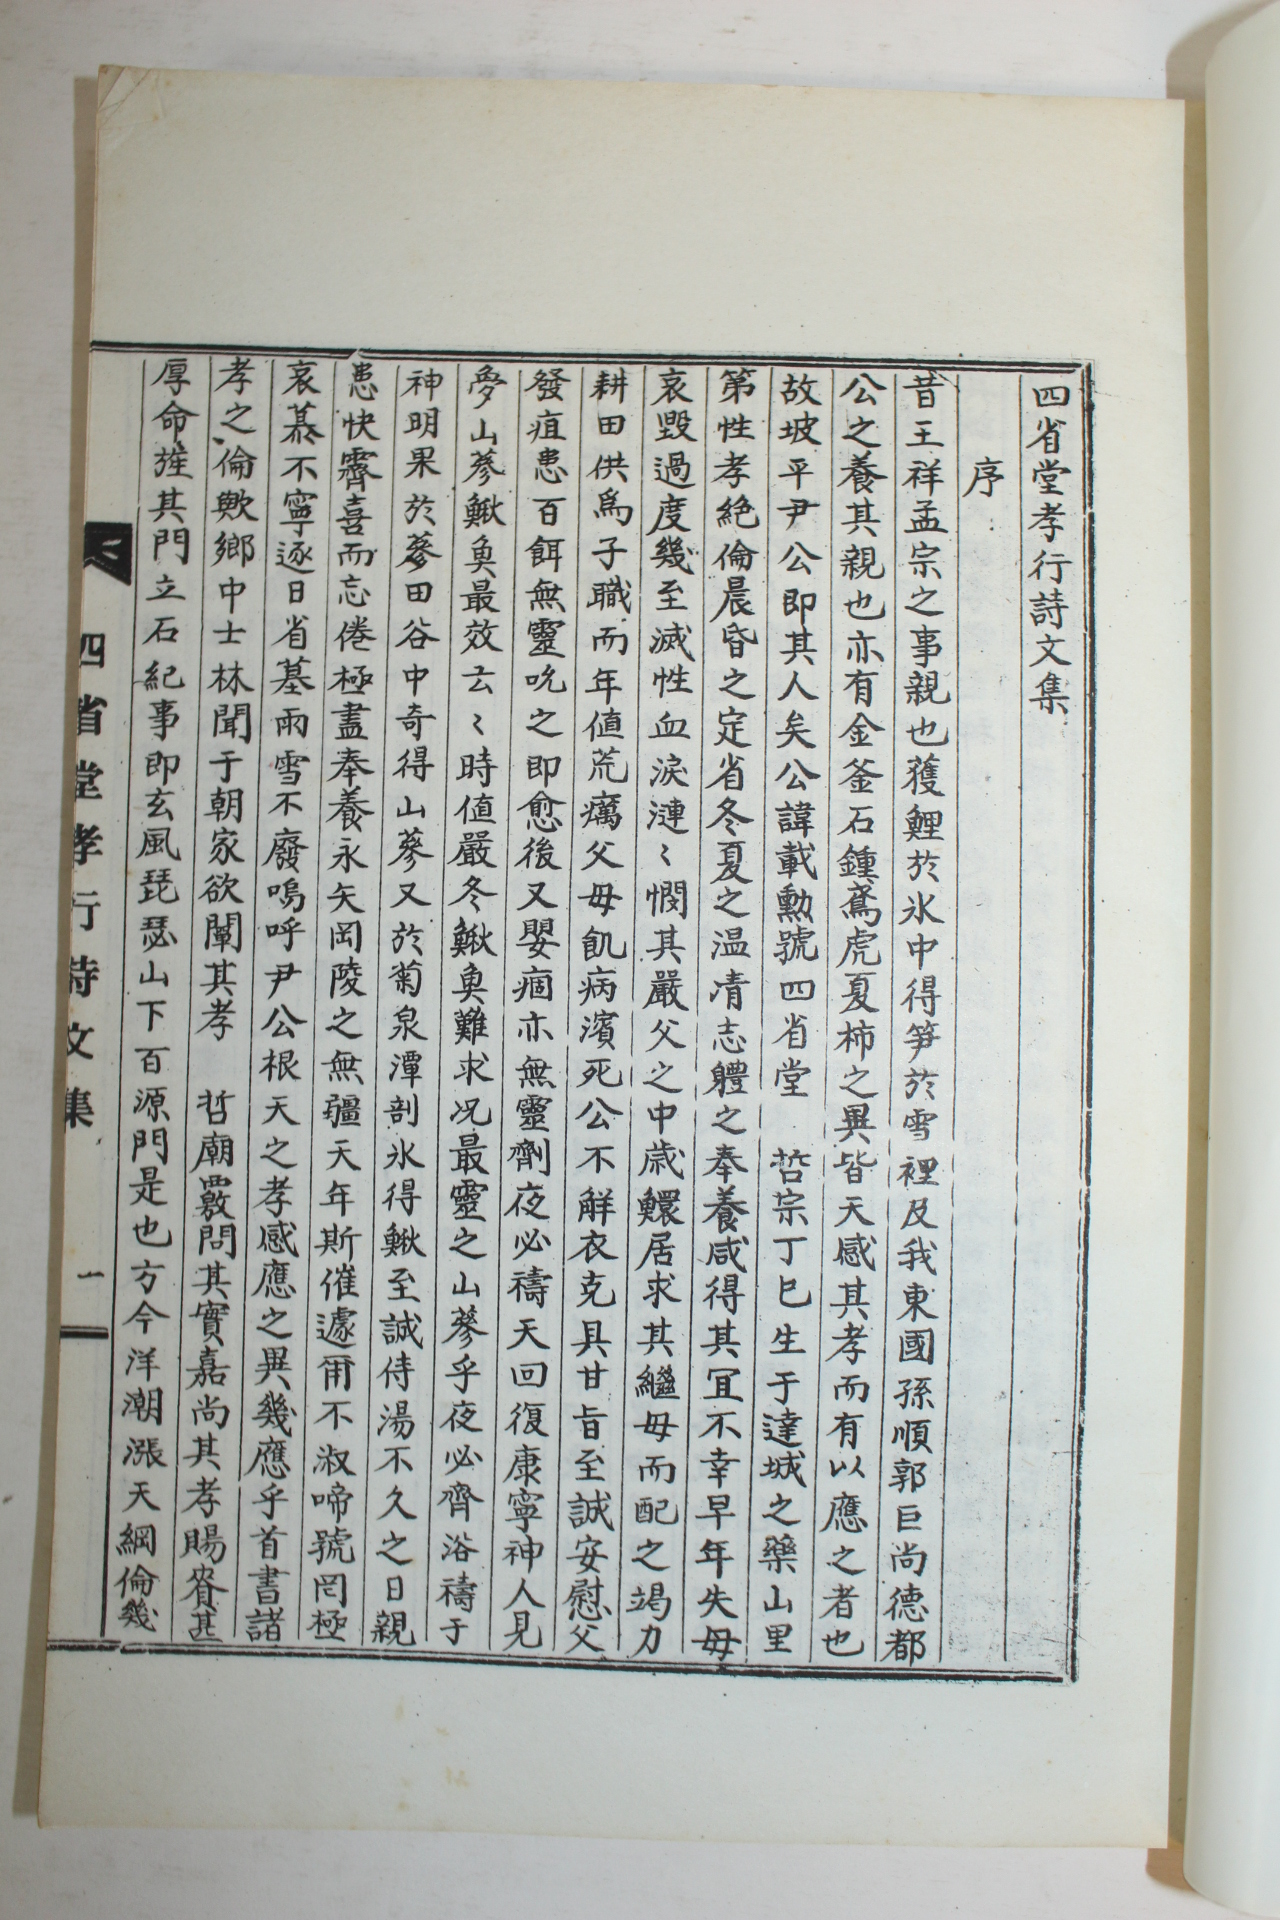 四省堂孝行詩文集
序
昔王祥孟宗之事親也獲鯉於氷中得笋於雪裡及我東國孫順郭巨尚德都
公之養其親也亦有金釜石鍾鳶虎夏柿之異皆天感其孝而有以應之者也
故坡平尹公即其人矣公諱載勳號四省堂 哲宗丁巳生于達城之藥山里
第性孝絶倫晨昏之定省冬夏之温清志軆之奉養咸得其冝不幸早年失母
哀毀過度幾至滅性血淚漣〻憫其嚴父之中歲鰥居求其繼母而配之竭力
耕田供爲子職而年値荒癘父母飢病濱死公不解衣克具甘旨至誠安慰父
發疽患百餌無靈吮之即愈後又嬰痼亦無靈劑夜必禱天回復康寧神人見
夢山蔘鰍魚最效云〻時値嚴冬鰍魚難求况最靈之山蔘乎夜必齊浴禱于
神明果於蔘田谷中奇得山蔘又於菊泉潭剖氷得鰍至誠侍湯不久之日親
患快霽喜而忘倦極盡奉養永矢岡陵之無疆天年斯催遽爾不淑啼號罔極
哀慕不寧逐日省墓雨雪不廢嗚呼尹公根天之孝感應之異幾應乎首書諸
孝之倫歟鄉中士林聞于朝家欲闡其孝 哲廟覈問其實嘉尚其孝賜賚甚
厚命旌其門立石紀事即玄風琵瑟山下百源門是也方今洋潮漲天綱倫幾
四省堂孝行詩文集 一